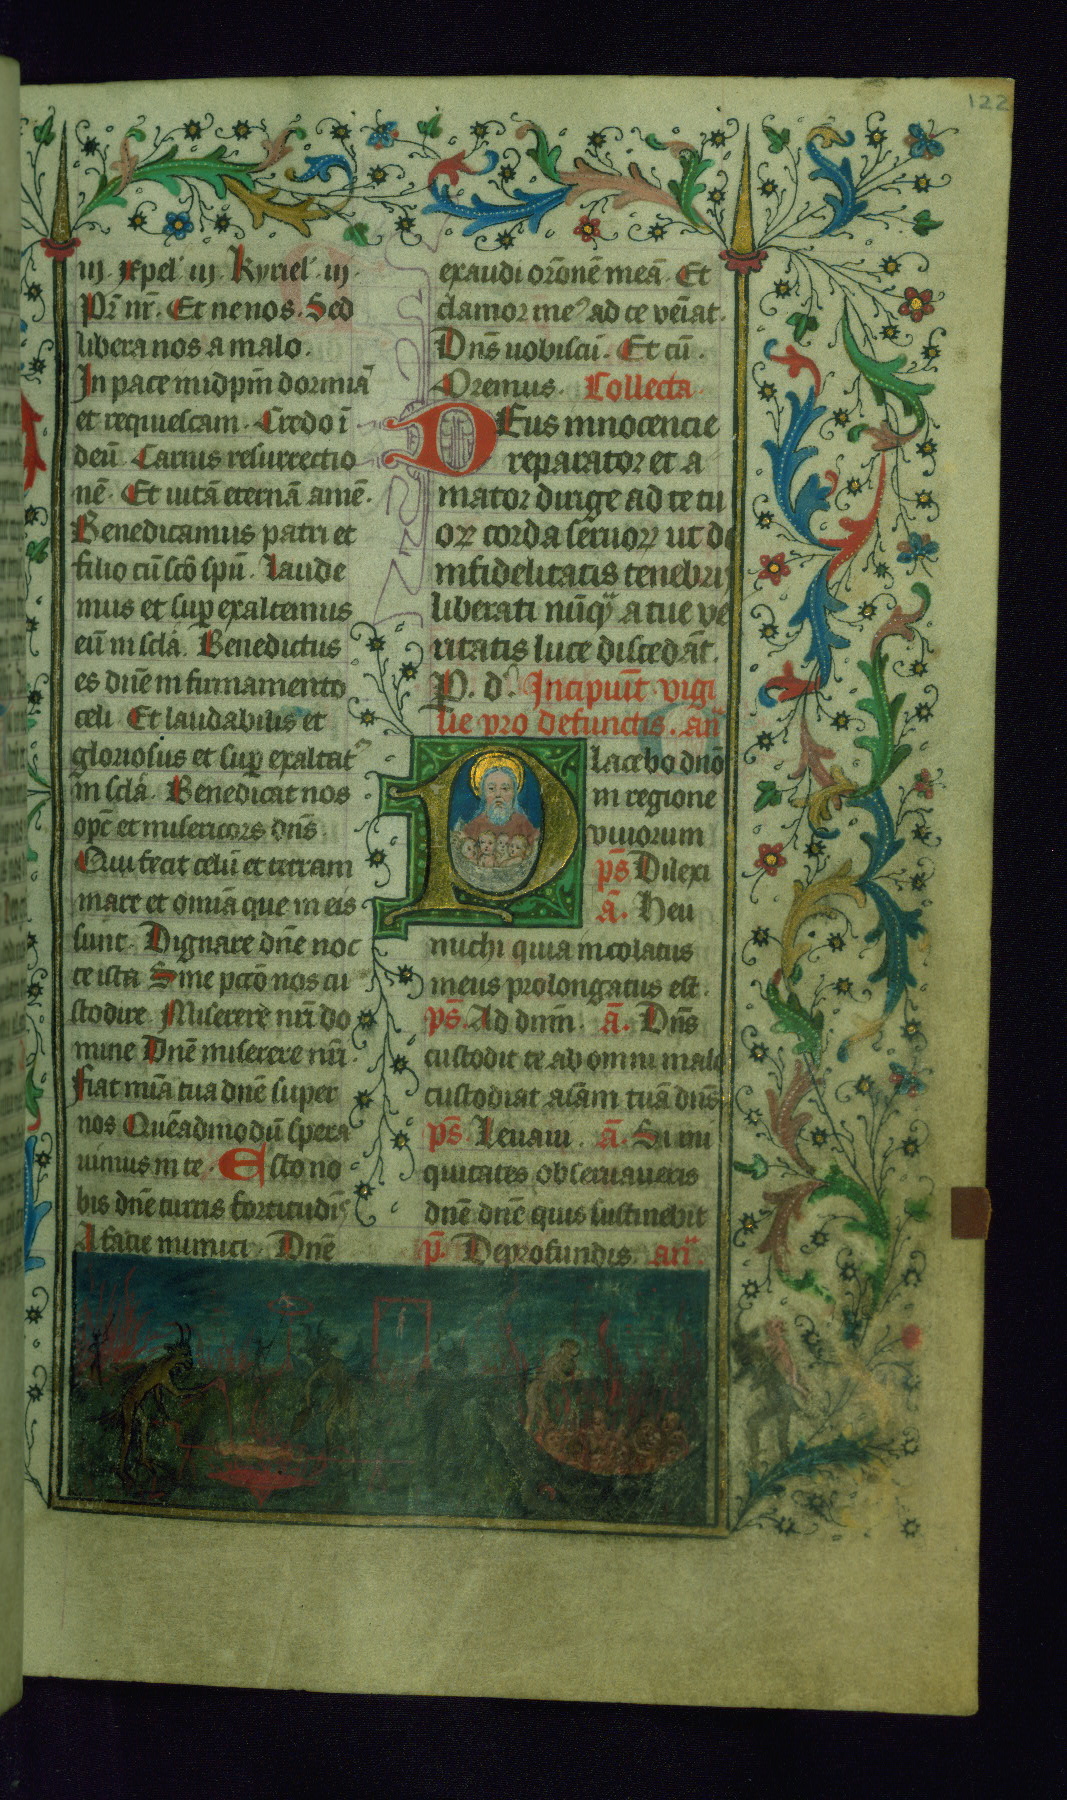 122
iij xpel' iij Kyriel' iij
Pr̄ nr̄. Et ne nos. Sed
libera nos a malo.
In pace in idipm̄ dormiā
et requiescam. Credo ī
deū. Carnis resurrectio
nē. Et vitā eternā amē.
Benedicamus patri et
filio cū scō spū. laude
mus et sup exaltemus
eū in scl̄a. Benedictus
es dn̄e in firmamento
celi Et laudabilis et
gloriosus et sup exaltat9
in scl̄a. Benedicat nos
op̄c et misericors dn̄s.
Qui fecit celū et terram
mare et omīa que in eis
sunt. Dignare dn̄e noc
te ista Sine pctō nos cu
stodire. Miserere nr̄i do
mine Dn̄e miserere nr̄i.
fiat mīa tua dn̄e super
nos Quēadmodū spera
uimus in te. Esto no
bis dn̄e turris fortitudīs
A facie inimici. Dn̄e
exaudi or̄onē meā. Et
clamor me9 ad te vēiat.
Dn̄s uobiscū. Et cū.
Oremus. Collecta
Deus innocencie
reparator et a
mator dirige ad te tu
oꝝ corda seruoꝝ ut de
infidelitatis tenebris
liberati nūq̄ a tue ve
ritatis luce discedāt.
P. d. Incipiūt vigi
lie pro defunctis. an̄
Placebo dnō
in regione
viuorum
ps̄ Dilexi
ā. Heu
michi quia incolatus
meus prolongatus est.
ps̄. Ad dnm̄. ā. Dn̄s
custodit te ab omni malo
custodiat aīam tuā dn̄s
ps̄. Leuaui. ā. Si ini
quitates obseruaueris
dn̄e dn̄e quis sustinebit
p̄. De profundis. an̄.